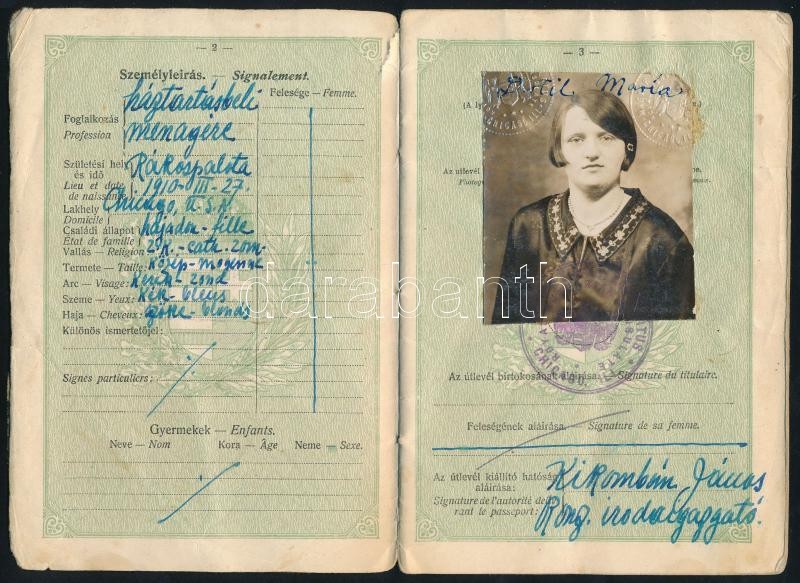 — 2 —
Személyleírás. — Signalement.
Felesége — Femme.
Foglalkozás háztartásbeli
Profession ménagère
Születési hely
és idő Rákospalota
Lieu et date
de naissance 1910-III-27.
Lakhely Chicago, U.S.A.
Domicile
Családi állapot hajadon - fille
État de famille
Vallás — Religion cath.
Termete — Taille: közép - moyenne
Arc — Visage: kerek - rond
Szeme — Yeux: kék - bleus
Haja — Cheveux: szőke - blonds
Különös ismertetőjel:
Signes particuliers:
Gyermekek — Enfants.
Neve — Nom Kora — Âge Neme — Sexe.
— 3 —
Mária
(A
Az útlevél
Az útlevél birtokosának aláírása. — Signature du titulaire.
Feleségének aláírása. — Signature de sa femme.
Az útlevél kiállító hatóság
aláírása: János
Signature de l'autorité
rant le passeport:
darabanth